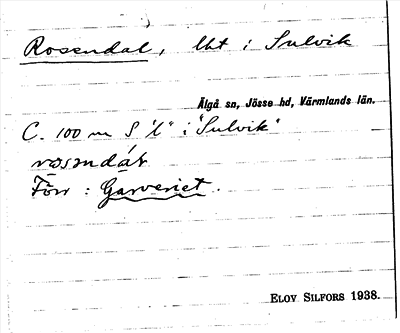 Rosendal, lht i Sulvik
Älgå sn, Jösse hd, Värmlands län.
C. 100 m S "l" i "Sulvik"
rosṃdáɫ
Förr : Garveriet.
ELOV SILFORS 1938.